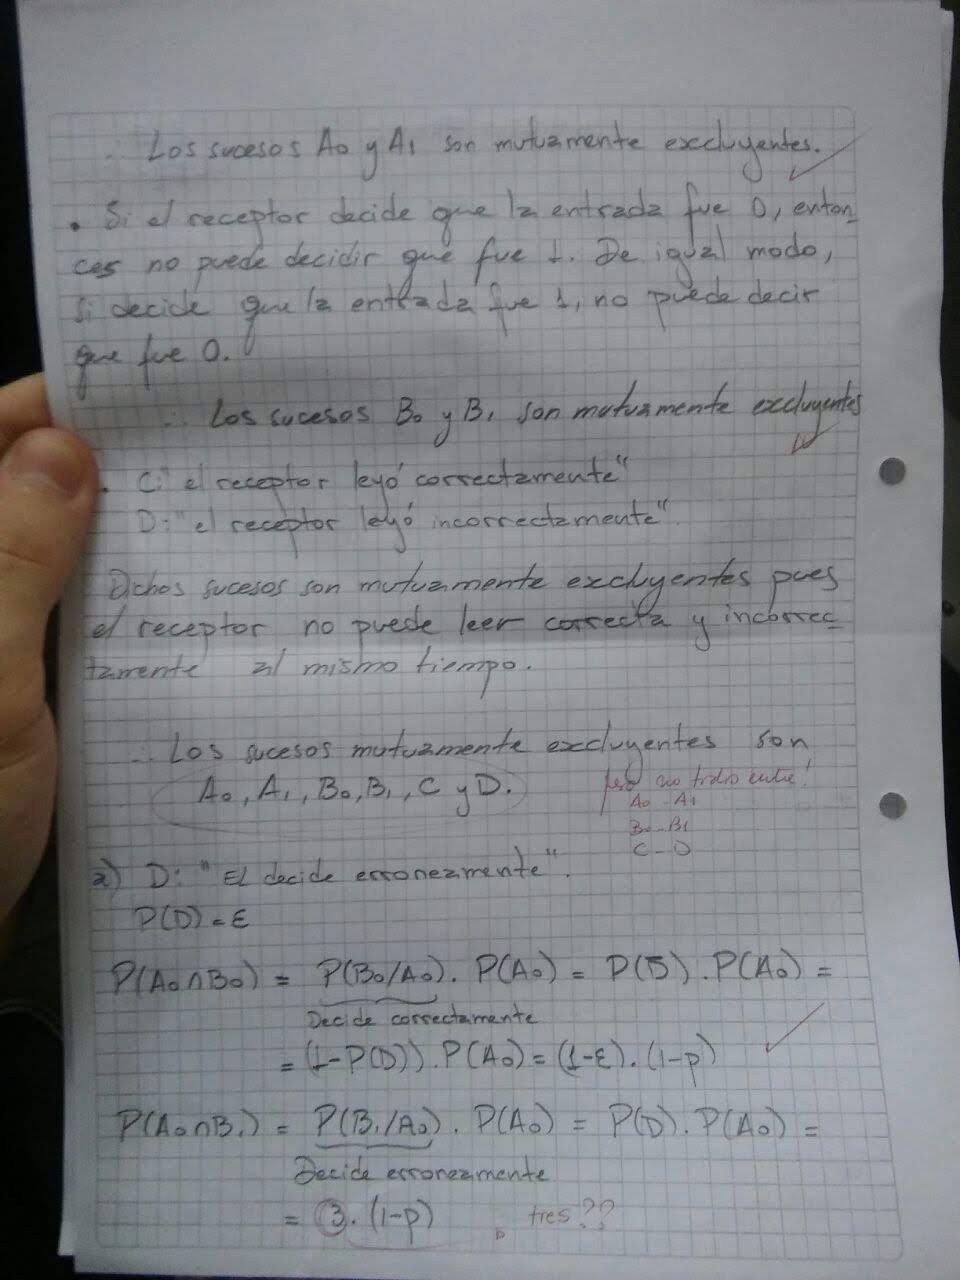 ∴ Los sucesos A0 y A1 son mutuamente excluyentes.
• Si el receptor decide que la entrada fue 0, enton
ces no puede decidir que fue 1. De igual modo,
si decide que la entrada fue 1, no puede decir
que fue 0.
∴ Los sucesos B0 y B1 son mutuamente excluyentes
• C: "el receptor leyó correctamente"
D: "el receptor leyó incorrectamente".
Dichos sucesos son mutuamente excluyentes pues
el receptor no puede leer correcta y incorrec
tamente al mismo tiempo.
∴ Los sucesos mutuamente excluyentes son
A0, A1, B0, B1, C y D.
pero no todos entre!
A0 - A1
B0 - B1
C - D
2) D: "El decide erroneamente".
P(D) = ε
P(A0∩B0) = P(B0/A0). P(A0) = P(D̄). P(A0) =
Decide correctamente
= (1-P(D)). P(A0) = (1-ε). (1-p)
P(A0∩B1) = P(B1/A0). P(A0) = P(D). P(A0) =
Decide erroneamente
= 3. (1-p)
tres??